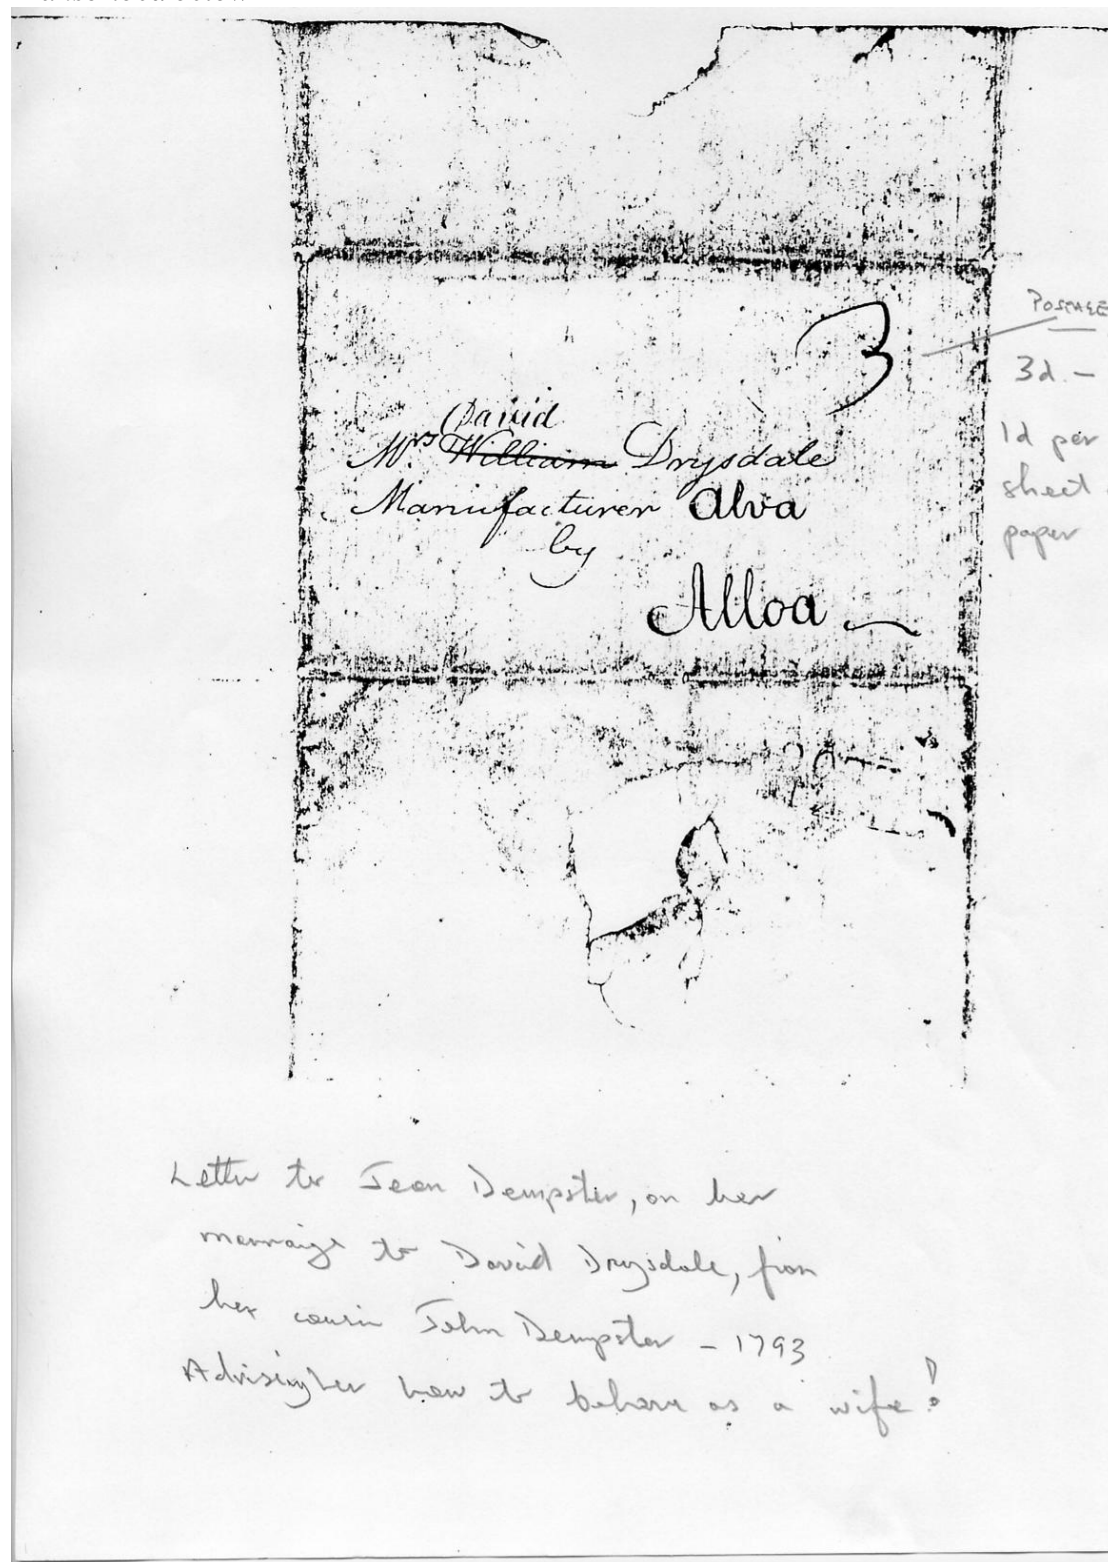 3
POSTAGE
3d. –
1d per
sheet
paper
David
Mrs William Drysdale
Manufacturer Alva
by
Alloa
Letter to Jean Dempster, on her
marraige to David Drysdale, from
her cousin John Dempster – 1793
Advising her how to behave as a wife!